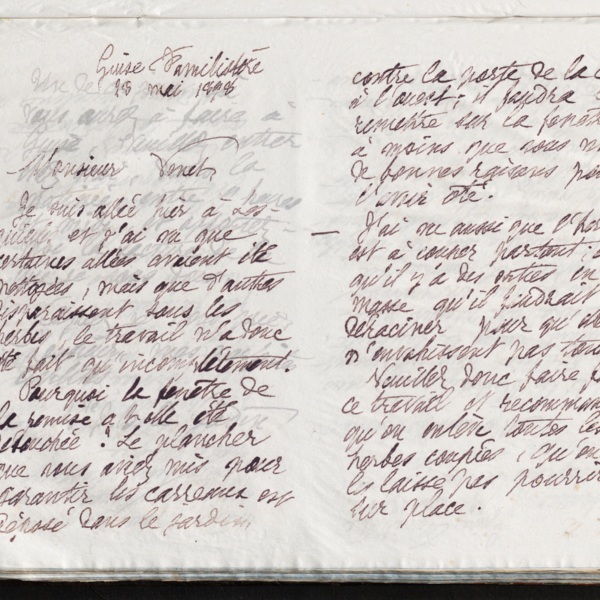 Guise Familistère
28 mai 1898
Monsieur
Je suis allée hier à Les-
quielles et j'ai vu que
certaines allées avaient été
nettoyées, mais que d'autres
disparaissent sous les
herbes, le travail n'a donc
été fait qu'incomplètement.
Pourquoi la fenêtre de
la remise a-t-elle été
débouchée ? Le plancher
que nous avions mis pour
garantir les carreaux est
déposé dans le jardin
contre la porte de la c
à l'ouest ; il faudra
remettre sur la fenêt
à moins que vous n'
de bonnes raisons po
l'avoir ôté.
— J'ai vu aussi que l'her
est à couper partout ;
qu'il y a des orties en
masse qu'il faudrait
déraciner pour qu'el
n'envahissent pas tou
Veuillez donc faire f
ce travail et recomman
qu'on enlève toutes les
herbes coupées, qu'on
les laisse pas pourrir
sur place.